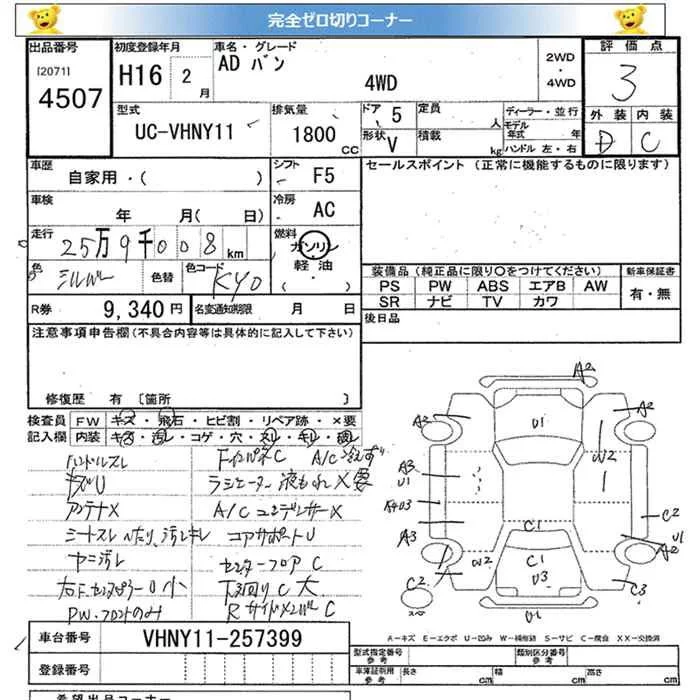 完全ゼロ切りコーナー
出品番号 [2071] 4507
初度登録年月 H16 2月
車名・グレード AD バン 4WD
2WD・4WD
評価点 3
外装 D 内装 C
型式 UC-VHNY11
排気量 1800 CC
ドア 5 形状 V
定員 人 積載 kg
ディーラー・並行
モデル年式 年
ハンドル 左・右
車歴 自家用・( )
シフト F5
セールスポイント (正常に機能するものに限ります)
車検 年 月( 日)
冷房 AC
走行 25万9千008 km
燃料 ガソリン 軽油 ( ・ )
色 シルバー 色替 色コード KY0
装備品 (純正品に限り○をつけてください)
新車保証書 有・無
PS PW ABS エアB AW
SR ナビ TV カワ
R券 9,340 円
名変通知期限 月 日
後日品
注意事項申告欄(不具合内容等は具体的に記入して下さい)
修復歴 有 [箇所 ]
検査員記入欄
FW キズ・飛石・ヒビ割・リペア跡・×要
内装 キズ・汚レ・コゲ・穴・スリ・キレ・破レ
ハンドルスレ
キズU
アンテナX
シートスレ ヘたり、汚レキレ
ヤニ汚レ
P.W.フロントのみ
A/C冷えず
ラジエーター液もれX要
A/C コンデンサーX
コアサポートU
センターフロア C
下回りC 大
Rサイドメンバー C
A2 A2 A2 U1 A3 U1 W2 A3 C1 C2 U1 A2 C2 W2 C1 U3 C3 U1
A-キズ E-エクボ U-凹み W-補修跡 S-サビ C-腐食 XX-交換済
車台番号 VHNY11-257399
登録番号
型式指定番号 参考
類別区分番号 参考
車庫証明用 参考 長さ cm 幅 cm 高さ cm
希望出品コーナー